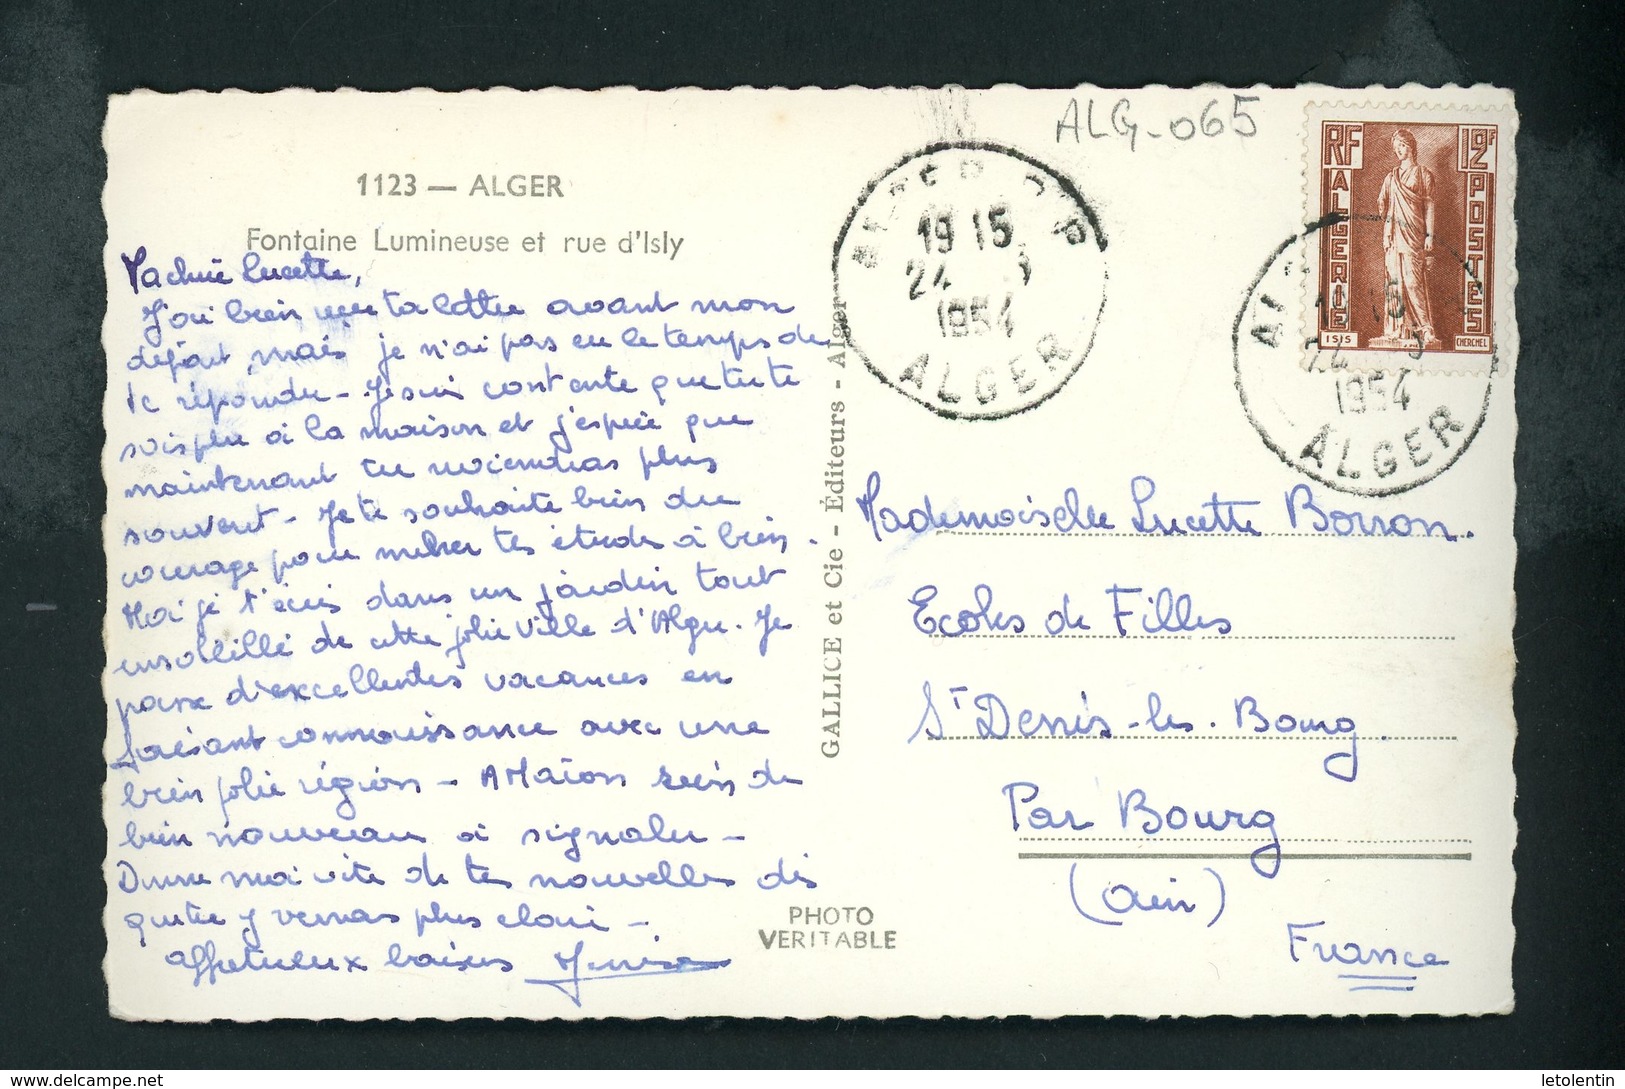 ALG-065
1123 — ALGER
Fontaine Lumineuse et rue d'Isly
Ma chère Lucette,
J'ai bien reçu ta lettre avant mon
départ, mais je n'ai pas eu le temps de
te répondre - Je suis contente que tu te
sois plu à la maison et j'espère que
maintenant tu reviendras plus
souvent - Je te souhaite bien du
courage pour mener tes études à bien.
Moi je t'écris dans un jardin tout
ensoleillé de cette jolie ville d'Alger. Je
passe d'excellentes vacances en
faisant connaissance avec une
bien jolie région - A Mâcon rien de
bien nouveau à signaler -
Donne moi vite de tes nouvelles dès
que tu y verras plus clair -
Affectueux baisers
GALLICE et Cie - Éditeurs - Alger
PHOTO
VERITABLE
RF
12F
ALGERIE
POSTES
ISIS
CHERCHEL
ALGER R.P
19 15
24 - 3
1954
ALGER
19 15
24 3
1954
ALGER
Mademoiselle Lucette Borron.
Ecoles de Filles
St Denis-les-Bourg.
Par Bourg
(Ain)
France
delcampe.net
letolentin